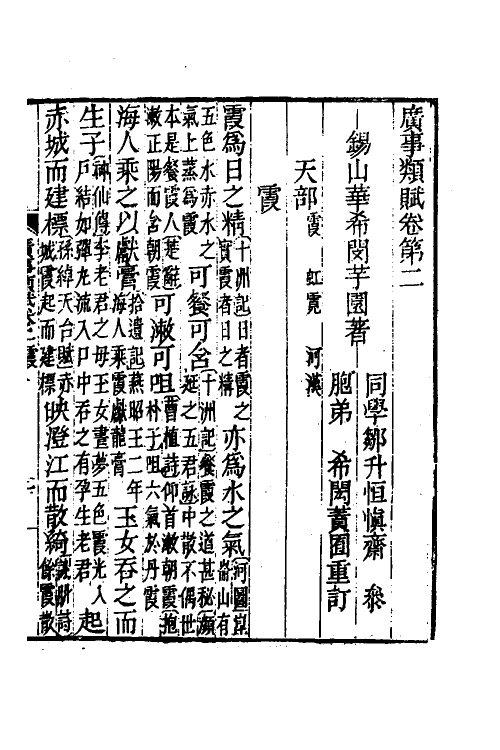 廣事類賦卷第二
同學鄒升恒慎齋 參
錫山華希閔芋園著
胞弟 希閎蕡園重訂
天部 霞 虹霓 河漢
霞
霞爲日之精十洲記日者霞之實霞者日之精亦爲水之氣河圖崑崙山有
五色水赤水之氣上蒸爲霞可餐可含十洲記餐霞之道甚秘顏延之五君詠中散不偶世
本是餐霞人楚辭漱正陽而含朝霞可漱可咀曹植詩仰首漱朝霞抱朴子咀六氣於丹霞
海人乘之以獻膏拾遺記燕昭王二年海人乘霞獻龍膏玉女吞之而
生子神仙傳李老君之母玉女晝夢五色霞光入戶結如彈丸流入口中吞之有孕生老君起
赤城而建標孫綽天台賦赤城霞起而建標映澄江而散綺謝朓詩餘霞散